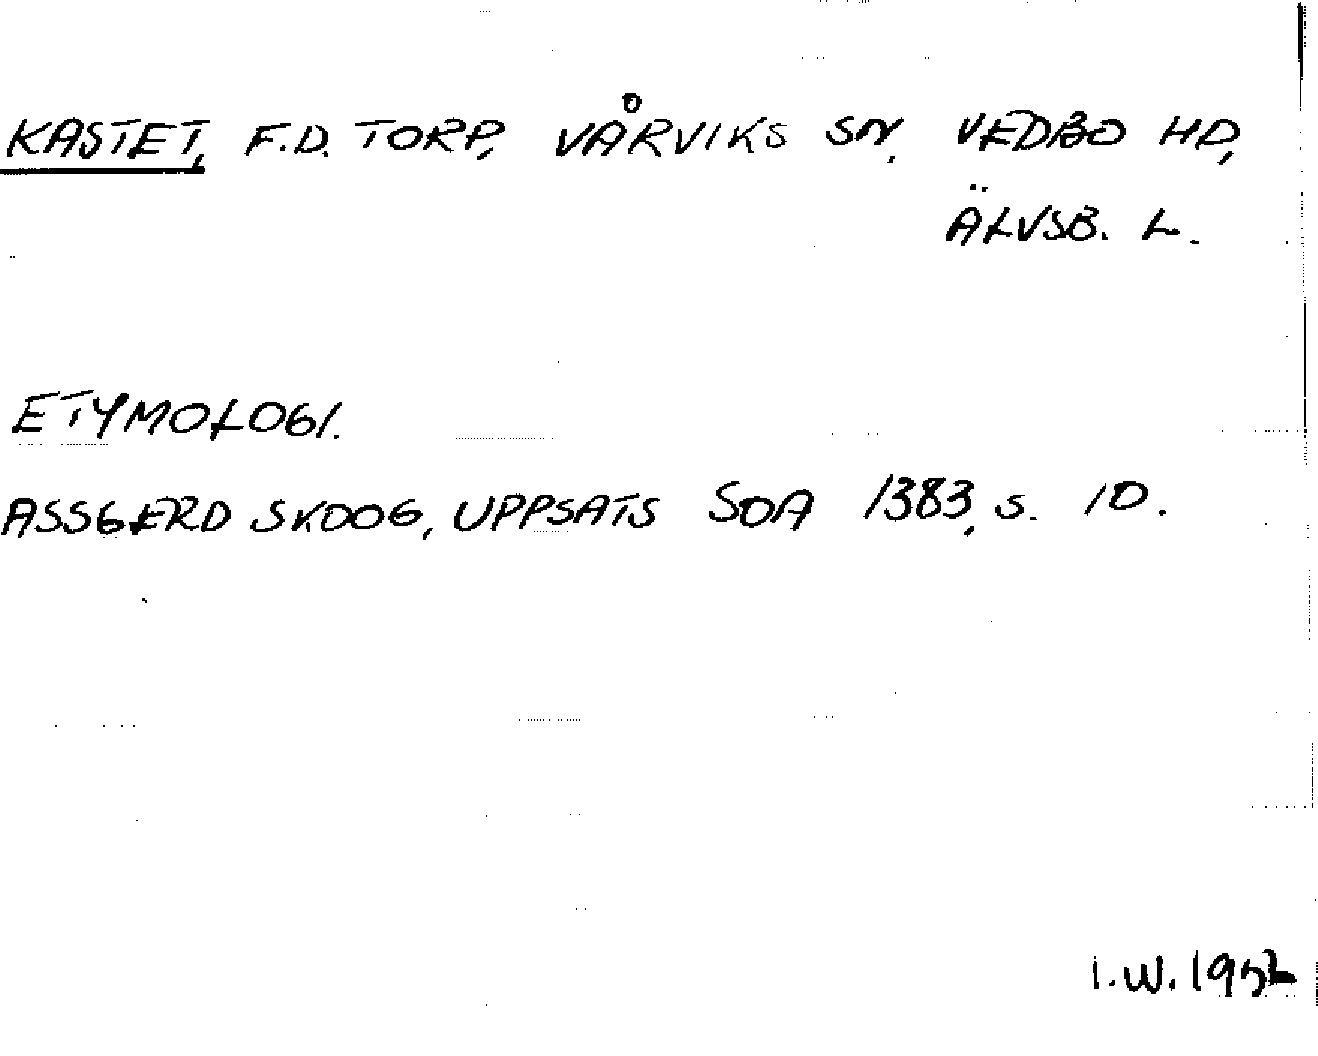 KASTET, F.D. TORP, VÅRVIKS SN, VEDBO HD,
ÄLVSB. L.
ETYMOLOGI.
ASSGERD SKOOG, UPPSATS SOA 1383, S. 10.
I.W. 1952